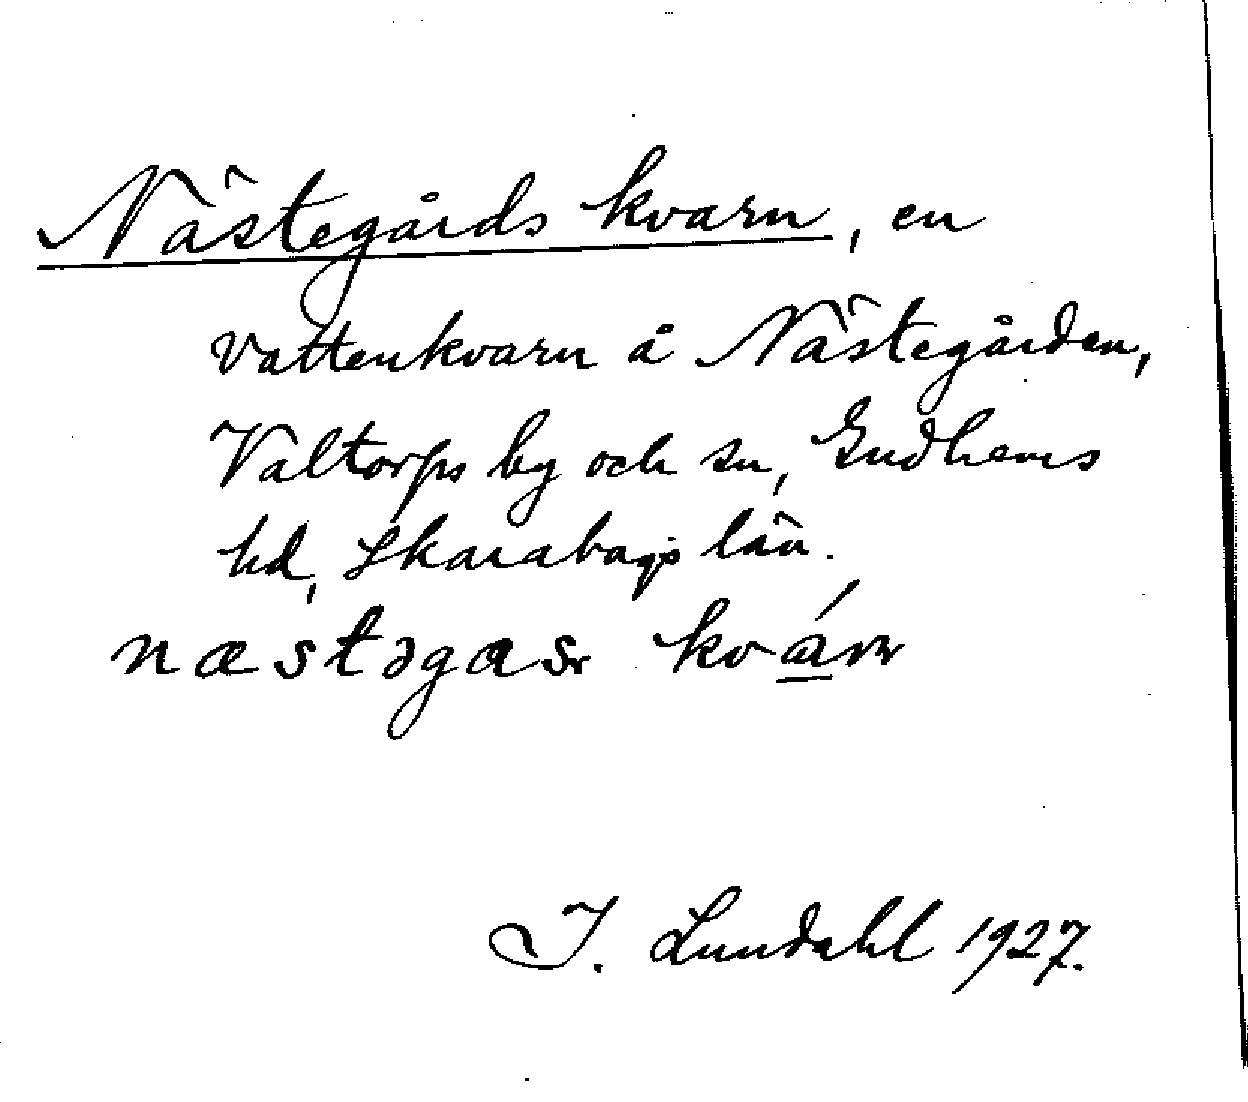 Nästegårds kvarn, en
vattenkvarn å Nästegården,
Valtorps by och sn, Gudhems
hd, Skarabogs län.
næstəgas kván
I. Lundahl 1927.